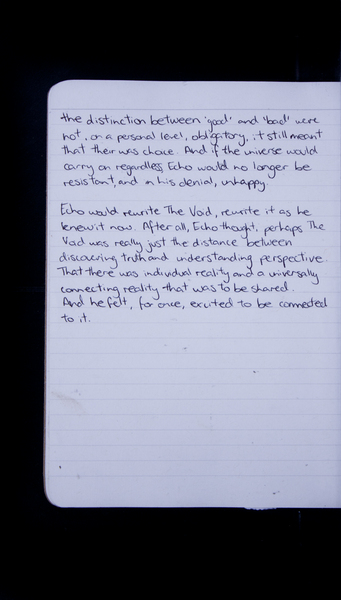 the distinction between 'good' and 'bad' were
not, on a personal level, obligatory, it still meant
that their was choice. And if the universe would
carry on regardless, Echo would no longer be
resistant, and in his denial, unhappy.
Echo would rewrite The Void, rewrite it as he
knew it now. After all, Echo thought, perhaps The
Void was really just the distance between
discovering truth and understanding perspective.
That there was individual reality and a universally
connecting reality that was to be shared.
And he felt, for once, excited to be connected
to it.